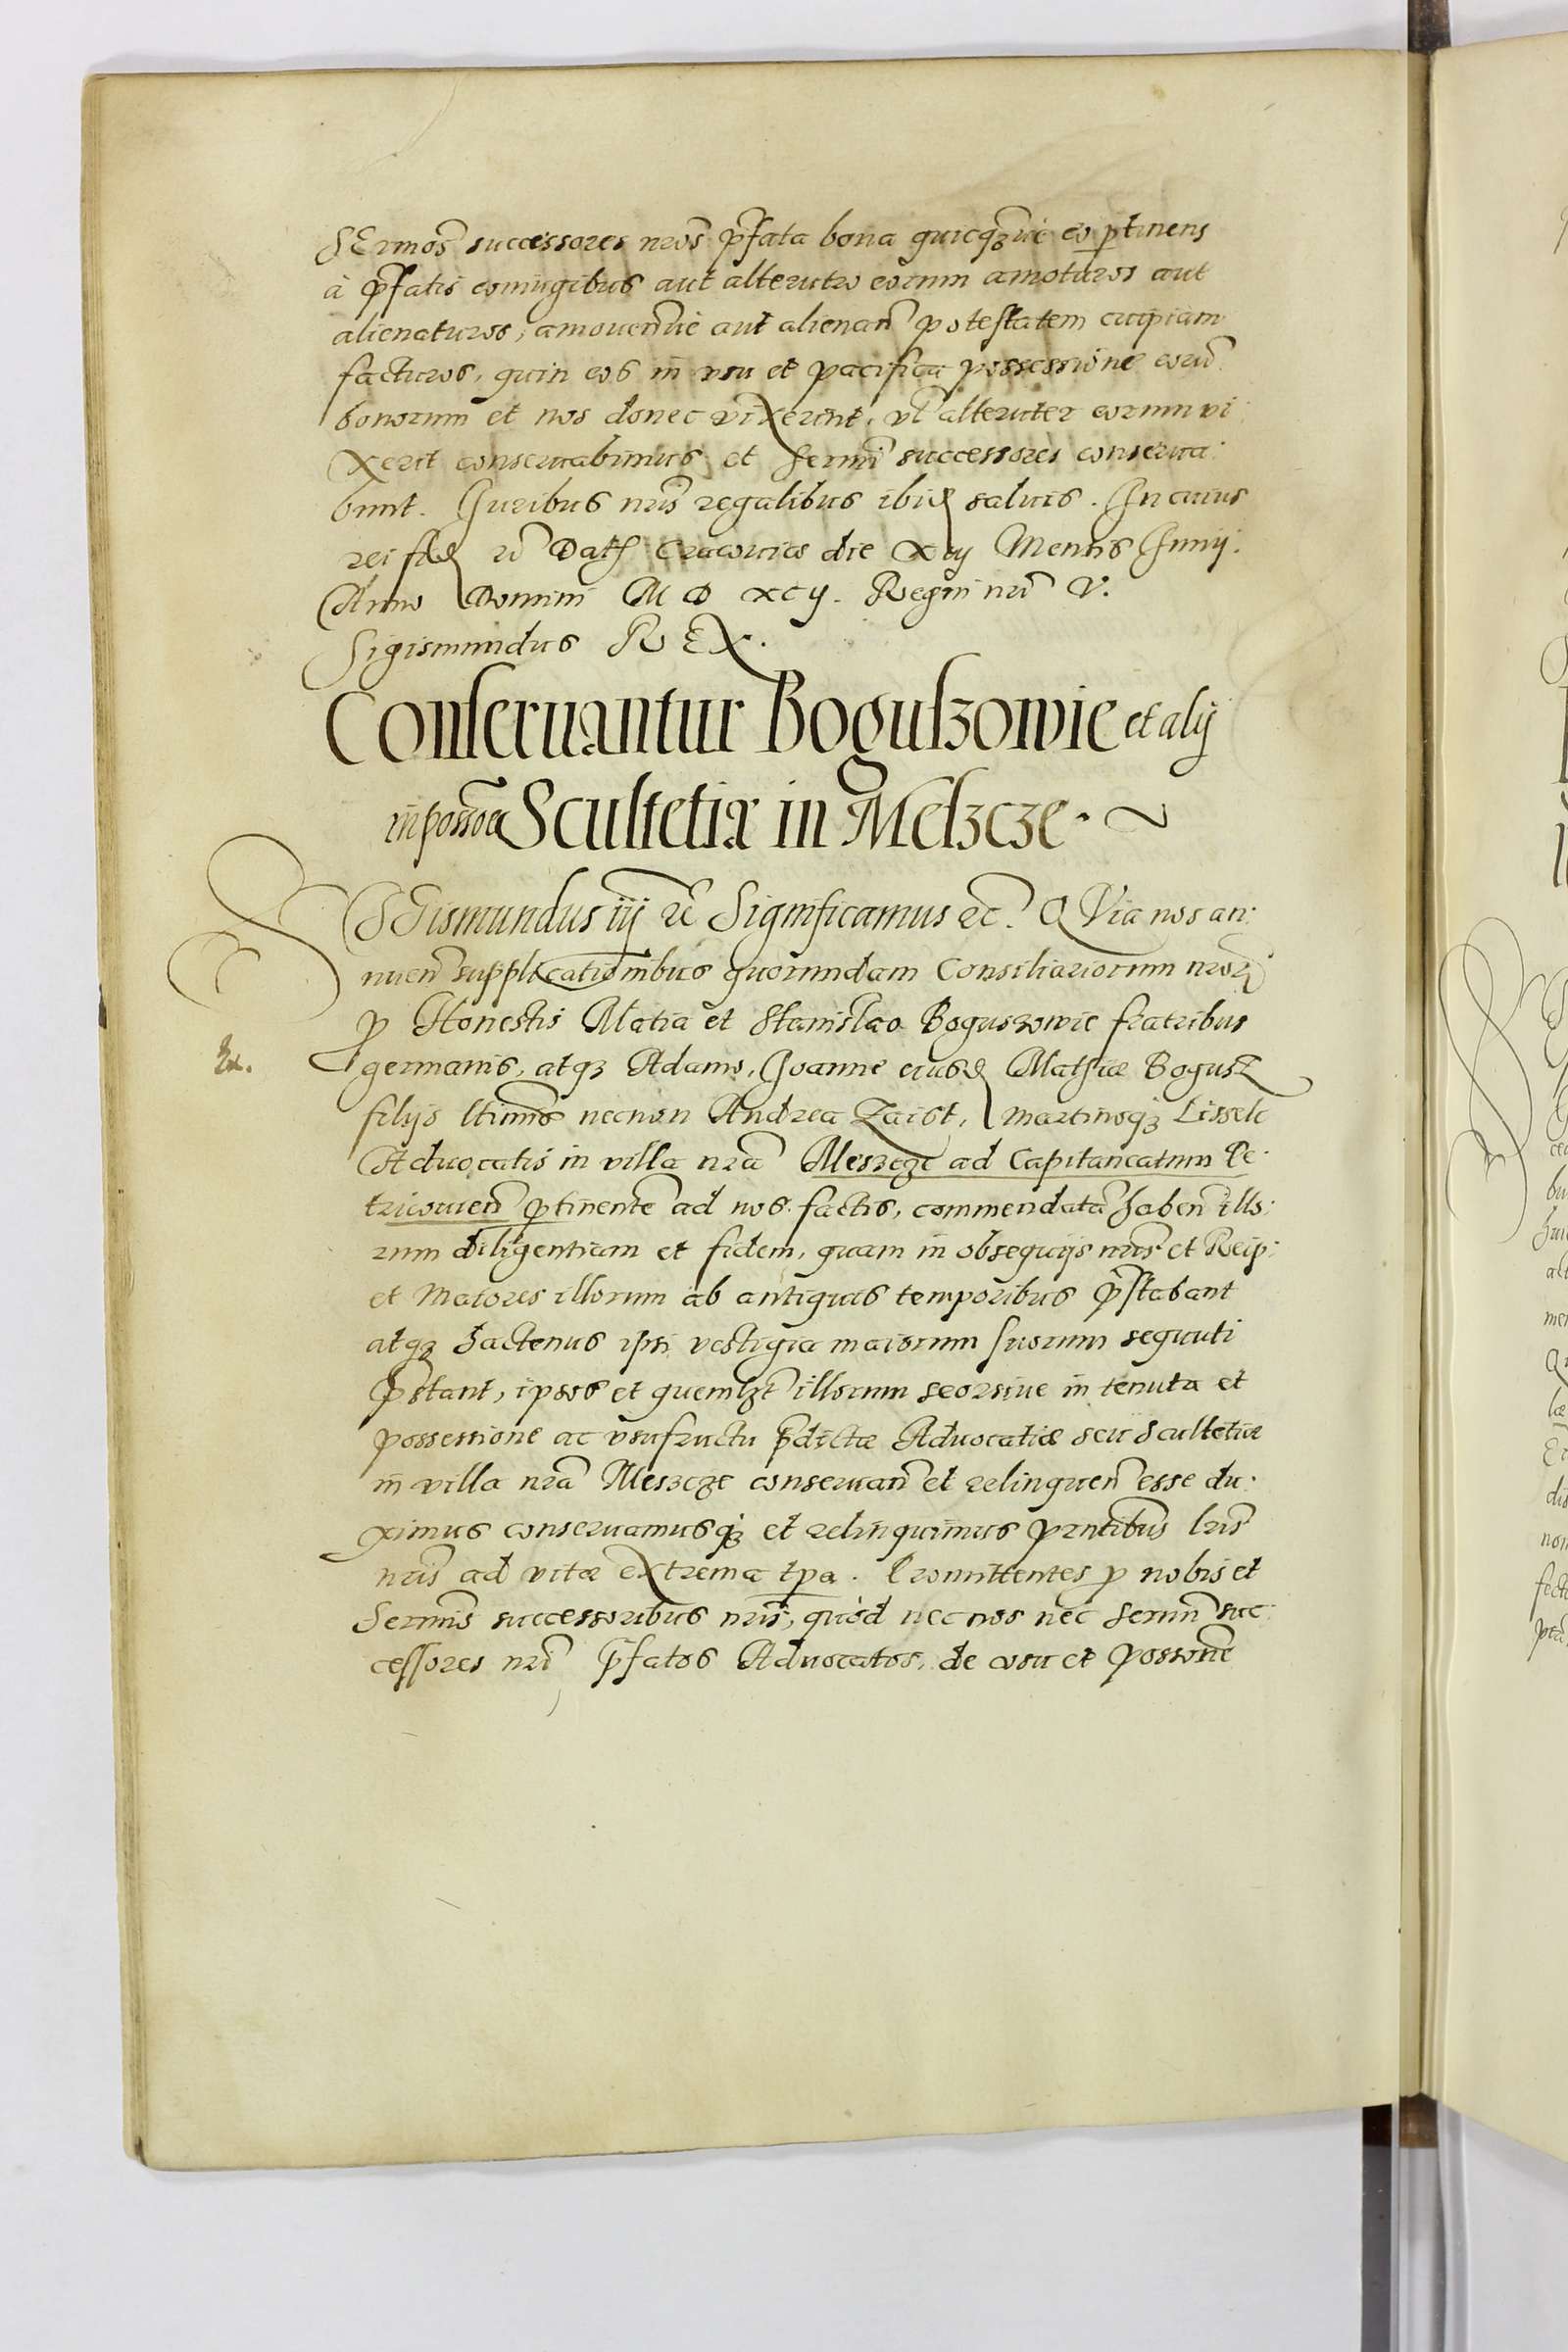 SErmos successores nros prfata bona quicqz ue eo ptinens
à prfatis coniugibus aut alterutro eorum amoturos aut
alienaturos, amouen ue aut alienan potestatem cuipiam
facturos, quin eos in vsu et pacifica possessione eorū
bonorum et nos donec vixerint, vl alteruter eorum vi:
xerit conseruabimus et Sermi successores conserua:
bunt. Iuribus nris regalibus ibid saluis. In cuius
rei fid rc Dat Cracouiæ die xiij Mensis Iunij.
Anno Domini M D xcij. Regni nri V.
Sigismundus REX.
Conseruantur Boguszowie et alij
in possoe Scultetiæ in Meszcze.
SIGismundus iij rc Significamus rc. QVia nos an:
nuen supplicationibus quorundam Consiliariorum nror
p Honestis Matia et Stanislao Boguszowie fratribus
germanis, atqz Adamo, Ioanne eiusd Mathiæ Bogusz
filijs ltimis necnon Andrea Zaist, martinoqz Lissek
Aduocatis in villa nra Meszcze ad Capitaneatum Pe:
tricouien ptinente ad nos factis, commendatā haben illo:
rum diligentiam et fidem, quam in obsequijs nris et Reip:
et Maiores illorum ab antiquis temporibus prstabant
atqz hactenus ipsi vestigia maiorum suorum sequuti
prstant, ipsos et quemlzt illorum seorsiue in tenuta et
possessione ac vsufructu prdictæ Aduocatiæ seu Scultetiæ
in villa nra Meszcze conseruan et relinquen esse du:
ximus conseruamusqz et relinquimus prntibus lris
nris ad vitæ extrema tpa. Promittentes p nobis et
Sermis successoribus nris, quòd nec nos nec Sermi suc:
cessores nri prfatos Aduocatos, de vsu et possone